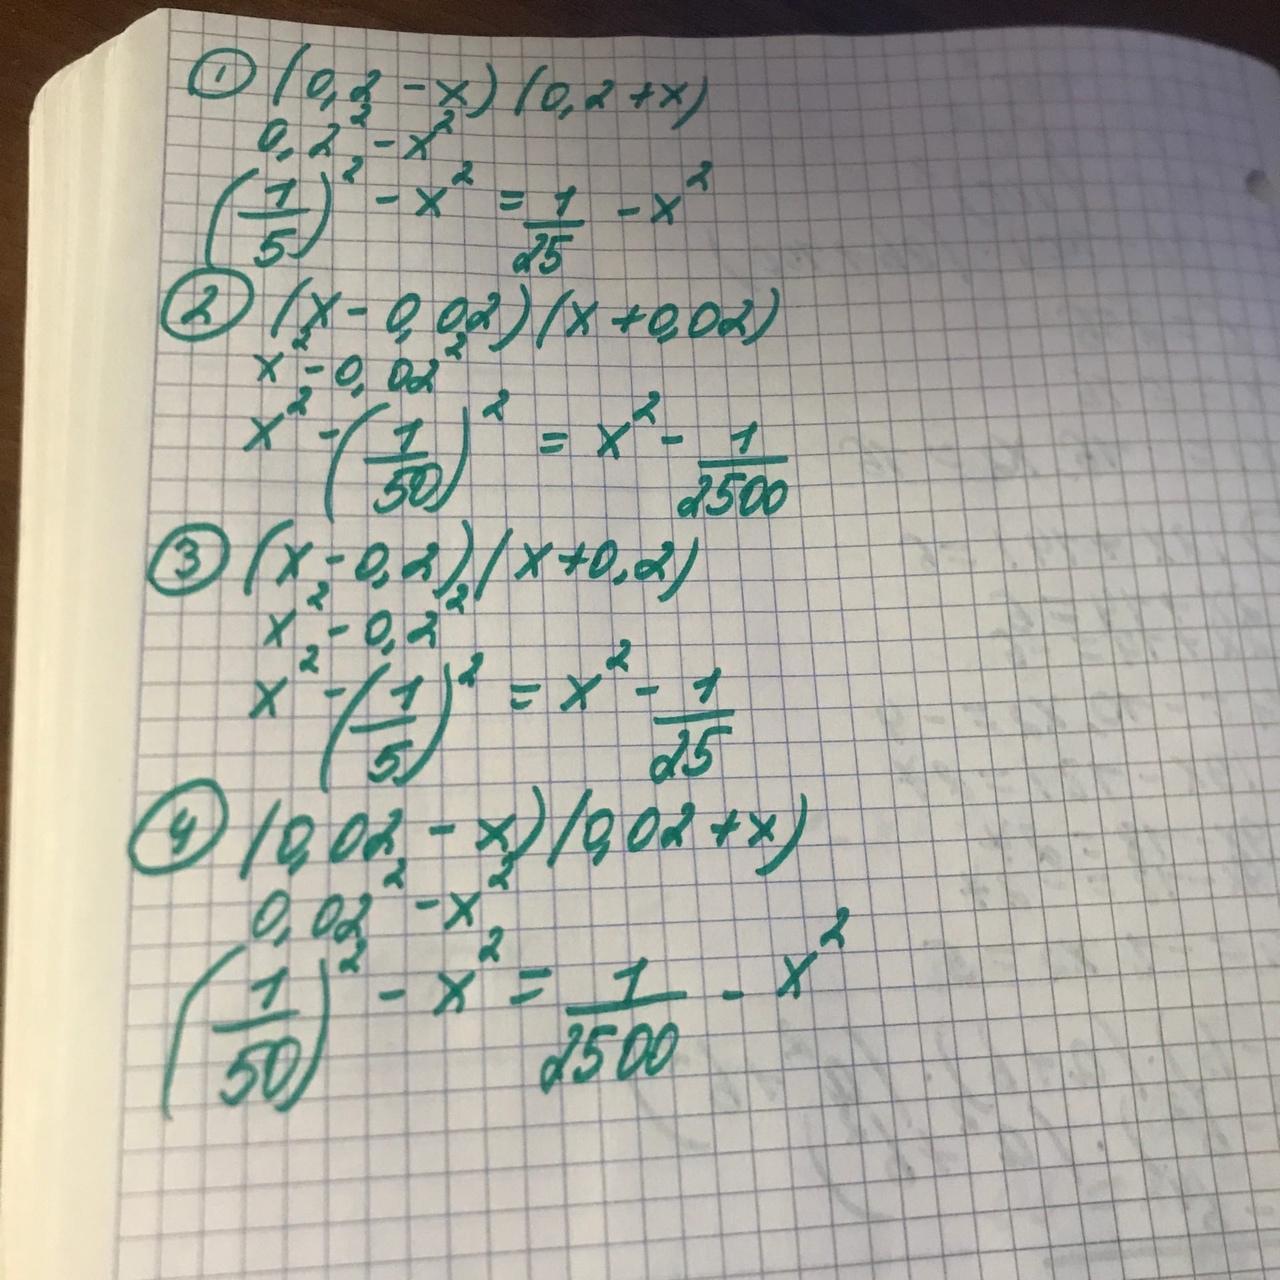 ① (0,2 - x)(0,2 + x)
0,2² - x²
(1/5)² - x² = 1/25 - x²
② (x - 0,02)(x + 0,02)
x² - 0,02²
x² - (1/50)² = x² - 1/2500
③ (x - 0,2)(x + 0,2)
x² - 0,2²
x² - (1/5)² = x² - 1/25
④ (0,02 - x)(0,02 + x)
0,02² - x²
(1/50)² - x² = 1/2500 - x²